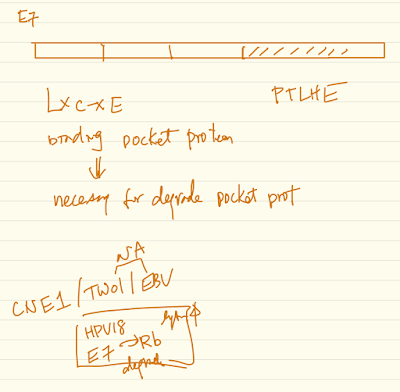 E7
LXC-XE
PTLHE
binding pocket protein
necessary for degrade pocket prot
NA
CNE1 / TW01 / EBV
HPV18
E7 → Rb
degrade